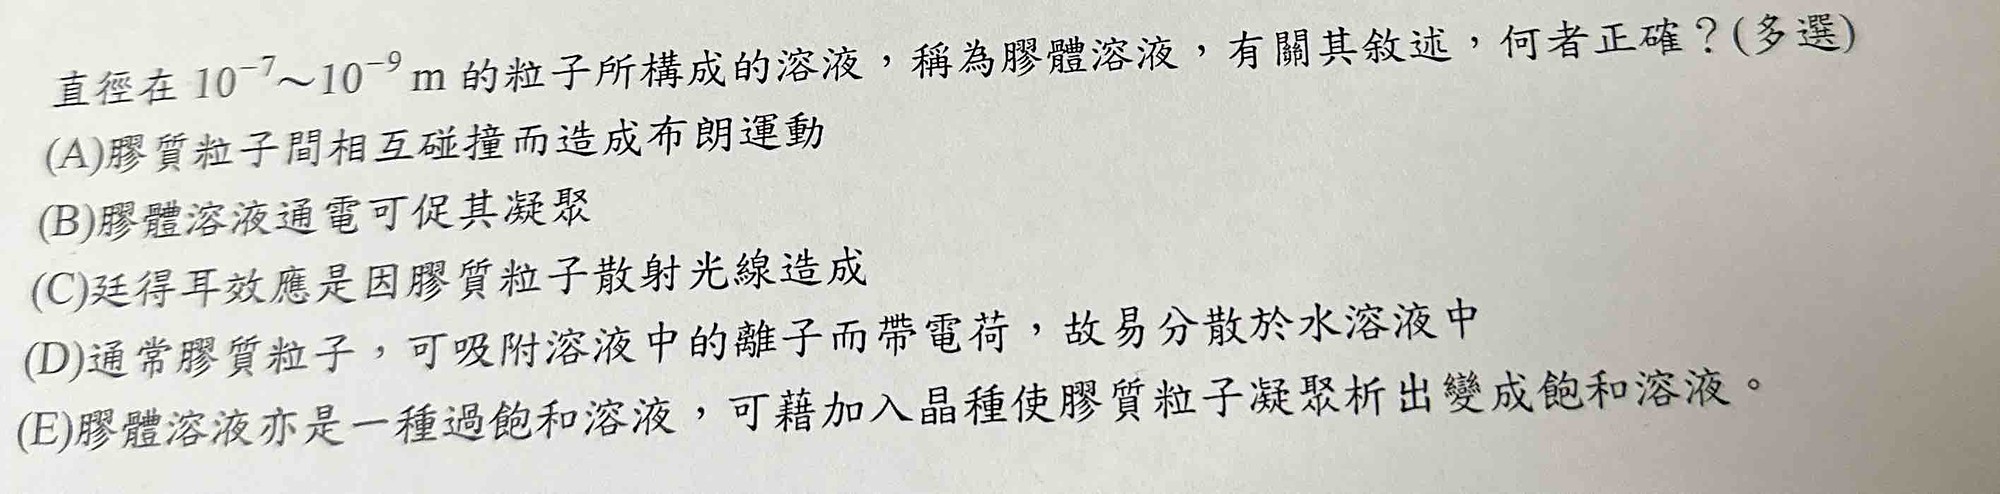 直徑在 10⁻⁷～10⁻⁹ m 的粒子所構成的溶液，稱為膠體溶液，有關其敘述，何者正確？(多選)
(A)膠質粒子間相互碰撞而造成布朗運動
(B)膠體溶液通電可促其凝聚
(C)廷得耳效應是因膠質粒子散射光線造成
(D)通常膠質粒子，可吸附溶液中的離子而帶電荷，故易分散於水溶液中
(E)膠體溶液亦是一種過飽和溶液，可藉加入晶種使膠質粒子凝聚析出變成飽和溶液。